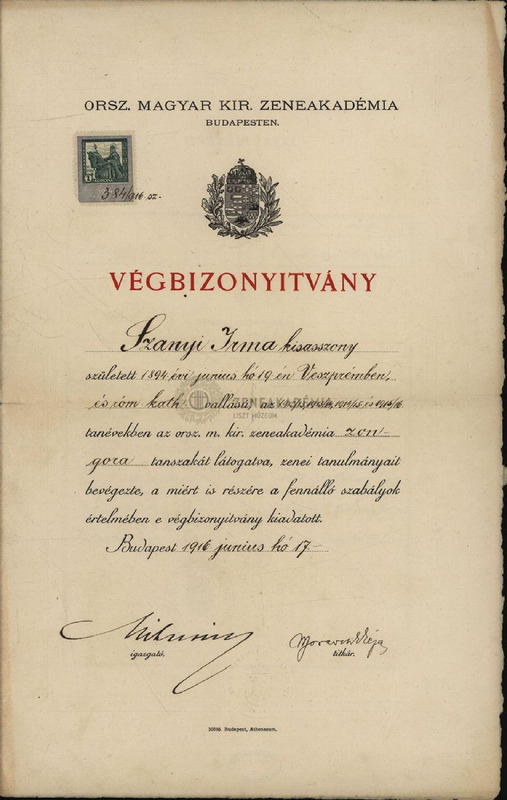 ORSZ. MAGYAR KIR. ZENEAKADÉMIA
BUDAPESTEN.
384/916 sz.
VÉGBIZONYITVÁNY
Szanyi Irma kisasszony
született 1894 évi junius hó 19 én Veszprémben,
és rom. kath. vallásu, az 1914/15 és 1915/16
tanévekben az orsz. m. kir. zeneakadémia zon-
gora tanszakát látogatva, zenei tanulmányait
bevégezte, a miért is részére a fennálló szabályok
értelmében e végbizonyitvány kiadatott.
Budapest 1916 junius hó 17.
igazgató.
titkár.
ZENEAKADÉMIA
LISZT MÚZEUM
Budapest, Athenaeum.